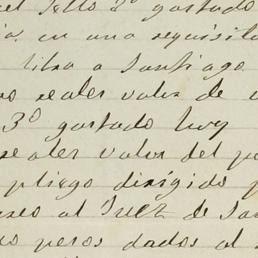 el Sello 3º gastado
en una requisito
libra a Santiago
reales valor de
3º gastado hoy
reales valor del p
pliego dirigido p
seo al Juez de Sa
pesos dados al